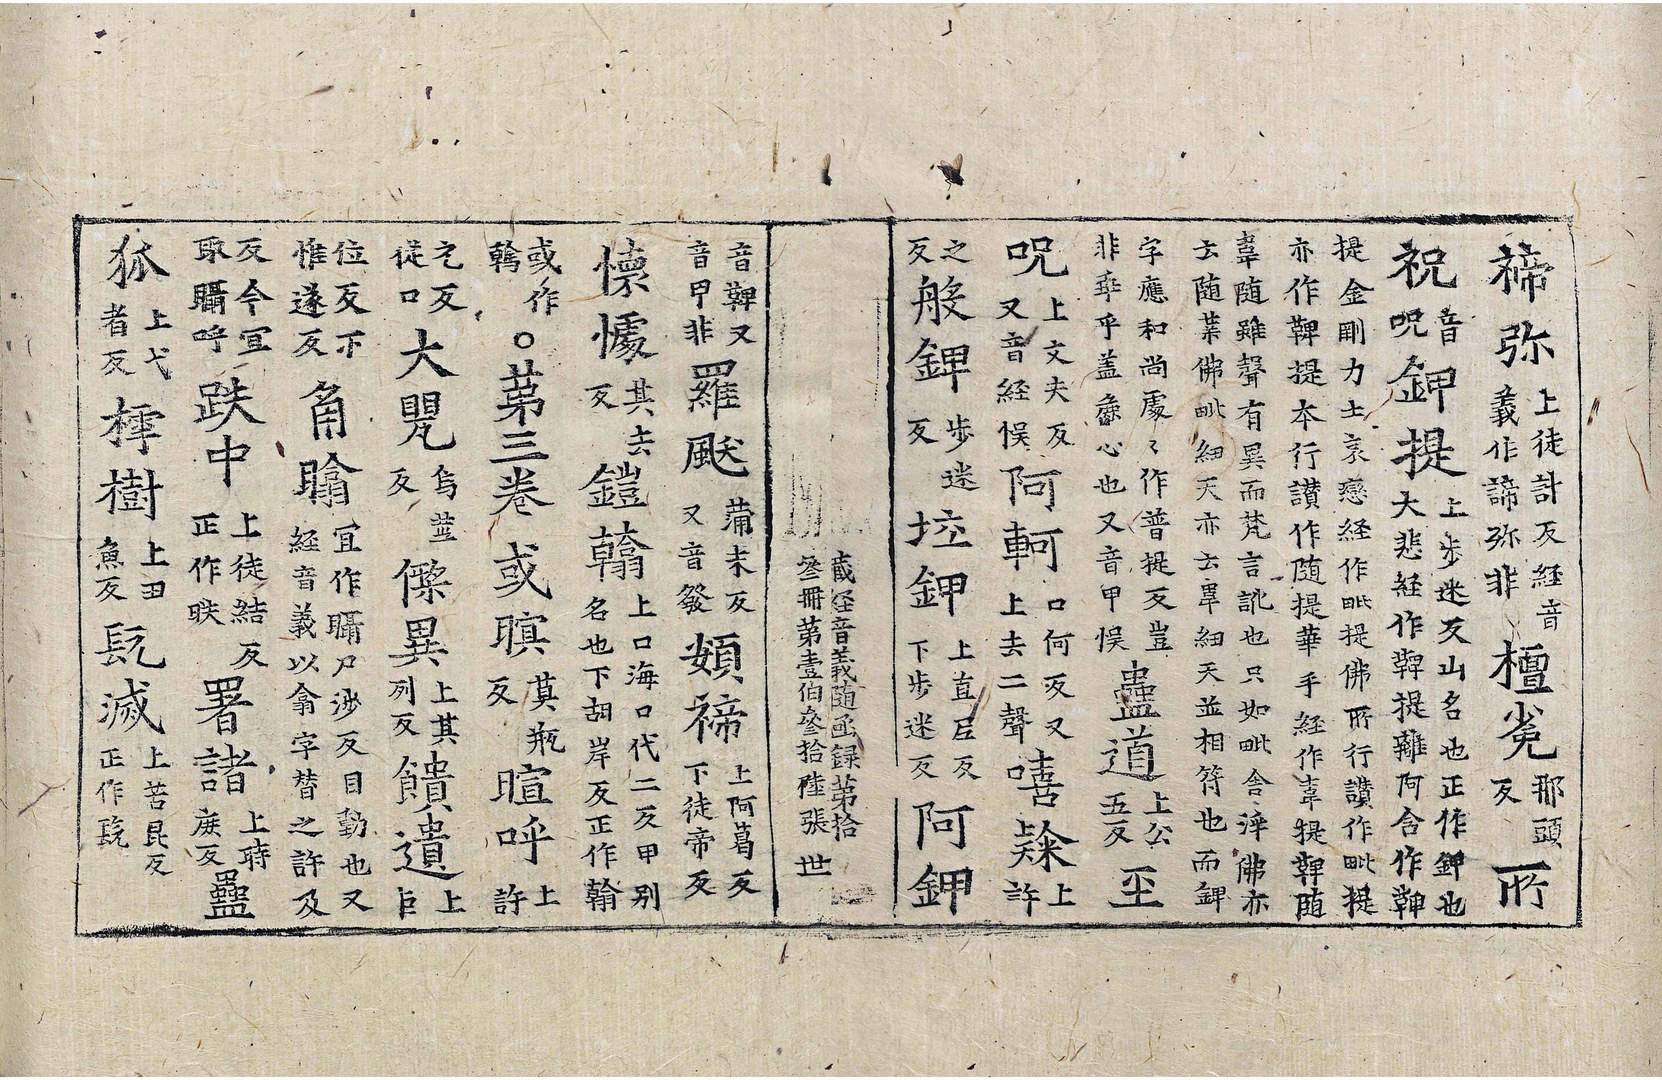 禘弥上徒計反経音義作諦弥非檀㲋那頭反所
祝音呪鉀提上步迷反山名也正作鉀也大悲経作鞞提雜阿含作鞞
提金剛力士哀戀経作毗提佛所行讃作毗提亦作鞞提本行讃作随提華手経作韋提鞞随
韋随雖聲有異而梵言訛也只如毗舍浮佛亦云随葉佛毗細天亦云韋細天並相符也而鉀
字應和尚處々作普提反豈非乖乎盖麁心也又音甲悮蠱道上公五反丕
呪上文夫反又音経悮阿軻口何反又上去二聲嘻䊷上許
之反般鉀步迷反坽鉀上直𡰱反下步迷反阿鉀
藏経音義随函録第拾
叅冊第壹伯叅拾陸張 世
音鞞又音甲非羅颰蒲末反又音發頞禘上阿葛反下徒帝反
懷懅其去反鎧䮧上口海口代二反甲别名也下胡岸反反正作翰
或作鶾○苐三卷或暝莫瓶反暄呼上許
之反徒口大瞾烏並反傑異上其列反饋遺上巨
位反下惟遂反角䁯宜作䀹尸涉反目動也又経音義以畲字替之許及
反今宜取䀹呼趺中上徒結反正作昳署諸上時庶反蠱
狐上弋者反㮔樹上田魚反髡滅上苦昆反正作髡